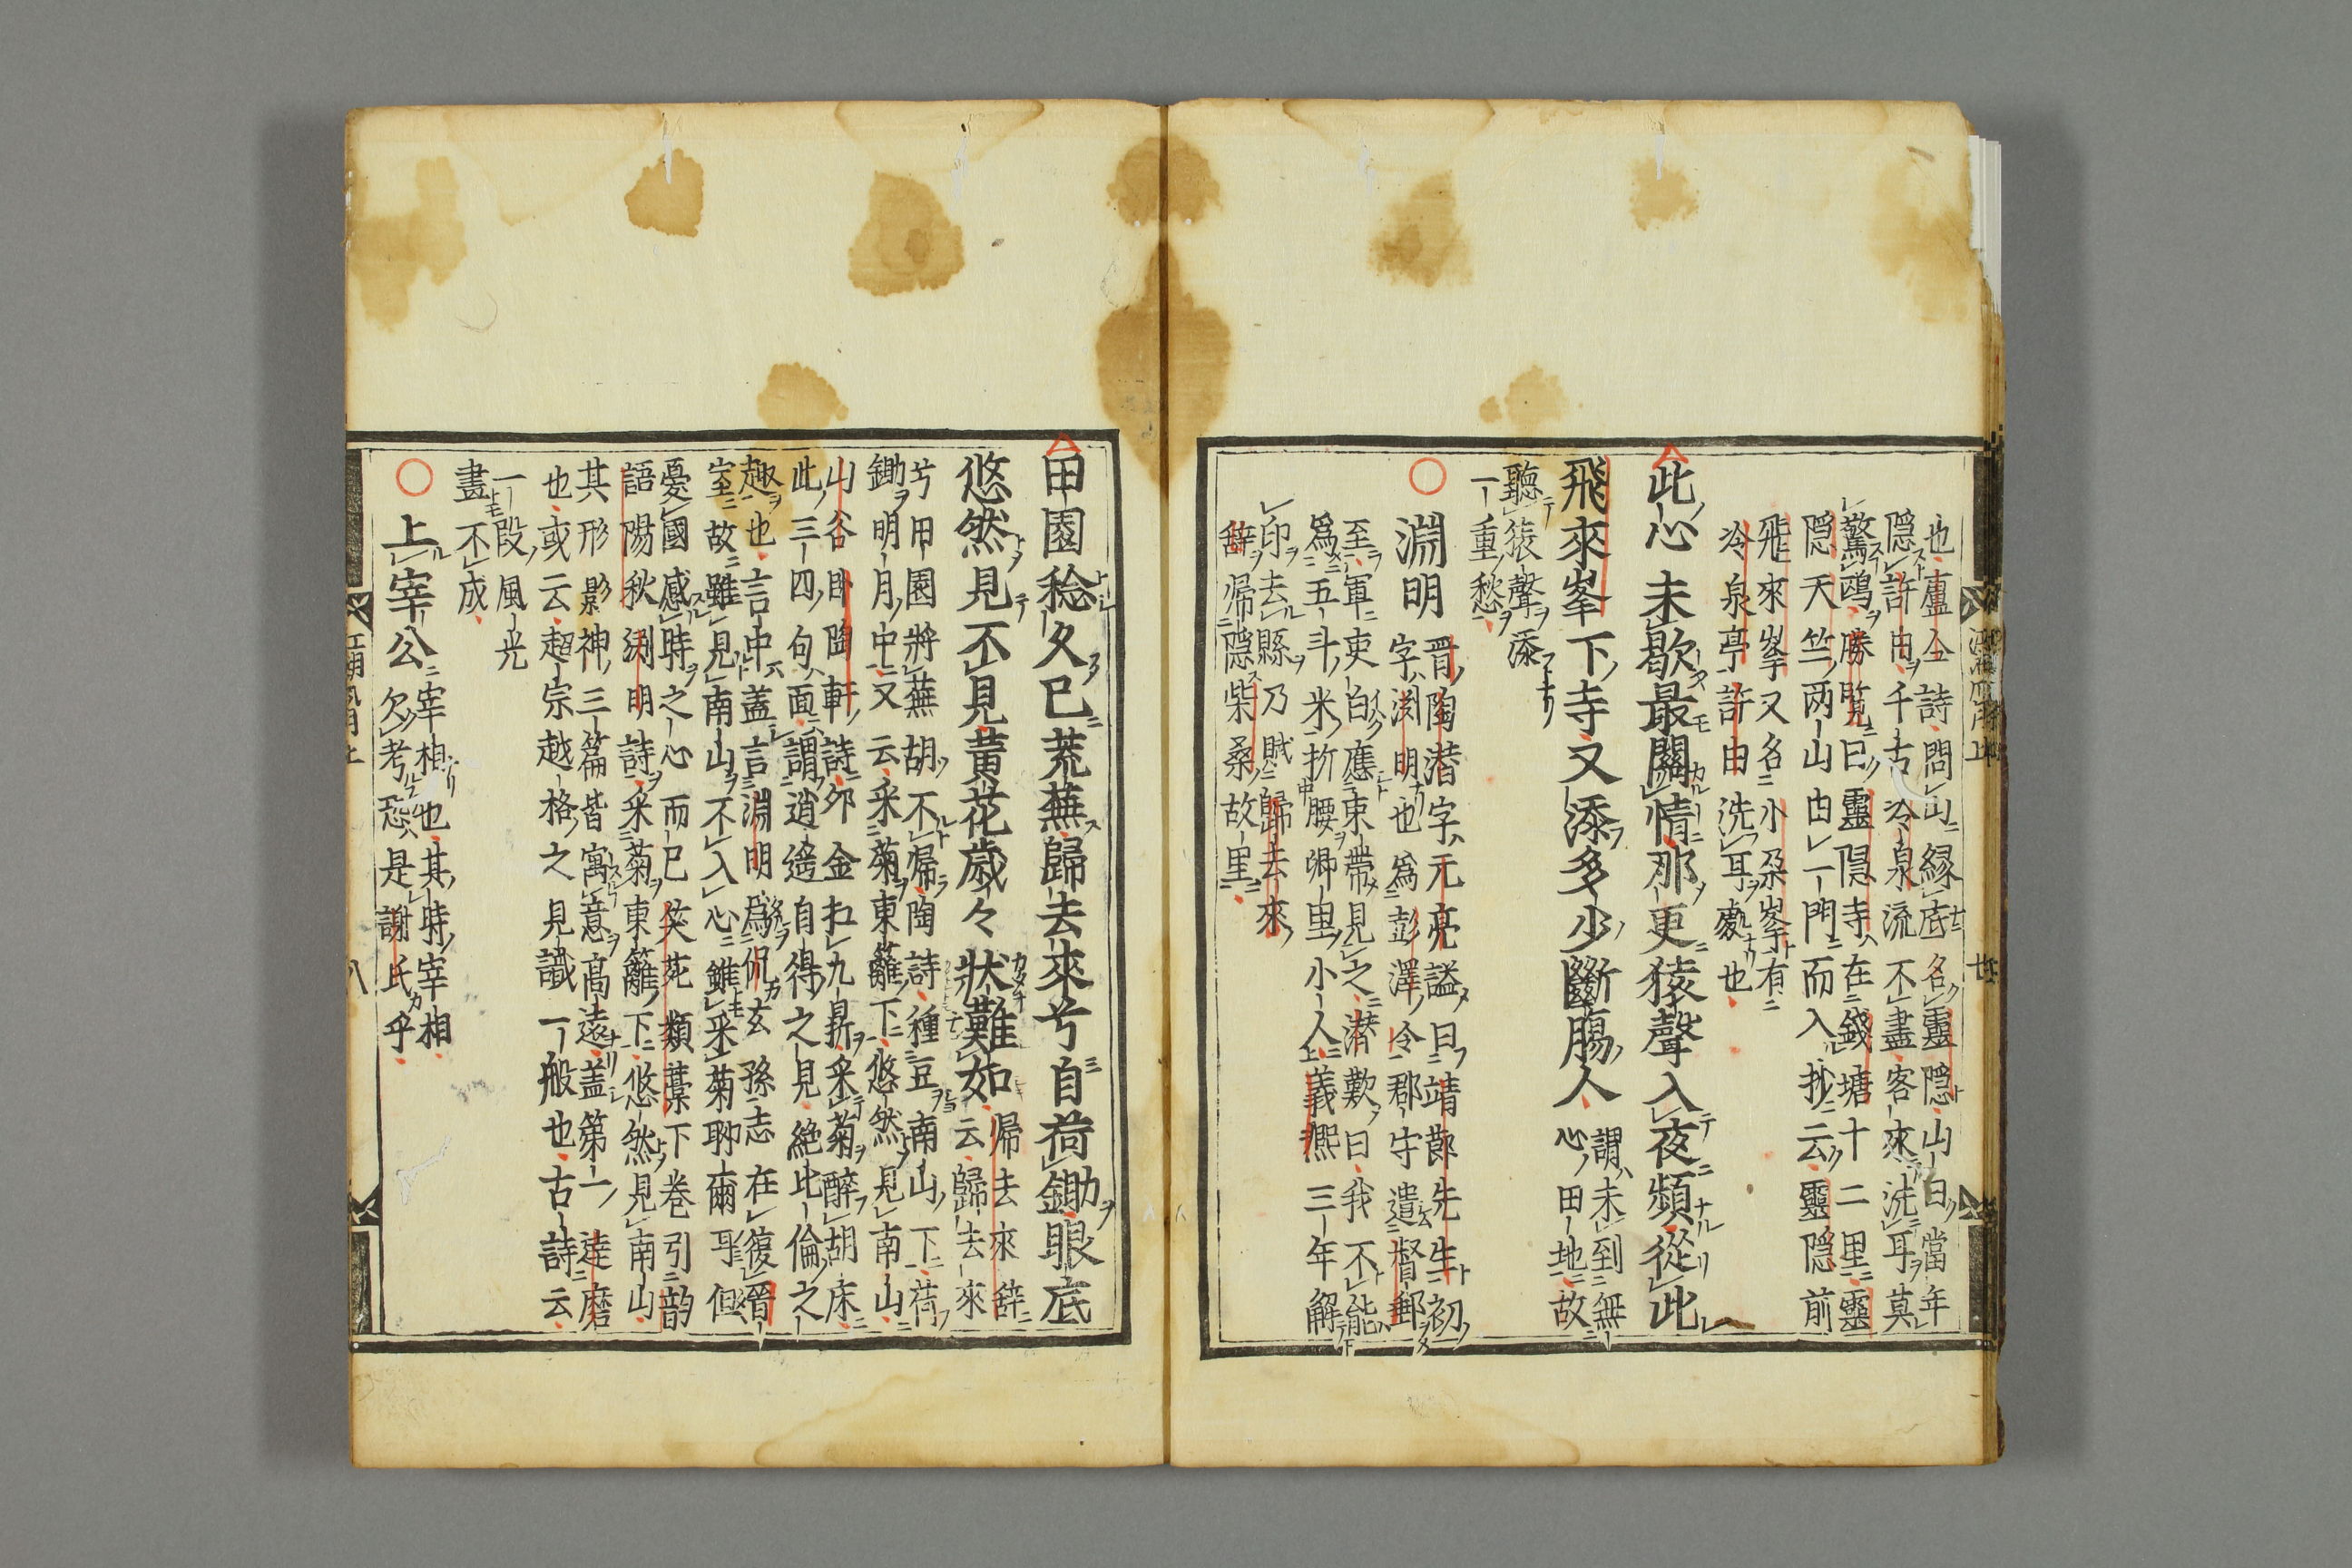 也盧仝詩問山縁底名靈隠山曰當年
隠許由千古冷泉流不盡客來洗耳莫
驚鴎勝覧曰靈隠寺在錢塘十二里靈
隠天竺两山由一門而入抄云靈隠前
飛來峯又名小朶峯有
冷泉亭許由洗耳處也
此心未歇最關情那更猿聲入夜頻從此
飛來峯下寺又添多少斷腸人
謂未到無
心田地故
聽猿聲添
一重愁
淵明
晋陶潜字元亮諡曰靖節先生初
字渕明也為彭澤令郡守遣督郵
至軍吏白應束帶見之潜歎曰我不能
爲五斗米折腰郷里小人義熙三年解
印去縣乃賦歸去來
辞帰隠柴桑故里
田園稔久已荒蕪歸去來兮自荷鋤眼底
悠然見不見黄花歳々状難如
帰去來辞
云歸去來
兮田園將蕪胡不帰陶詩種豆南山下荷
鋤明月中又云采菊東籬下悠然見南山
山谷卧陶軒詩夘金扛九鼎采菊醉胡床
此三四句面謂逍遙自得之見絶比倫之
趣也言中蓋言淵明為侃玄孫志在復晉
室故雖見南山不入心雖采菊聊爾耳但
憂國感時之心而已笑苑類藁下巻引韵
語陽秋渕明詩采菊東籬下悠然見南山
其形影神三篇皆寓意髙遠盖第一達磨
也或云超宗越格之見識一般也古詩云
一段風光
畫不成
上宰公
宰相也其時宰相
欠考恐是謝氏乎